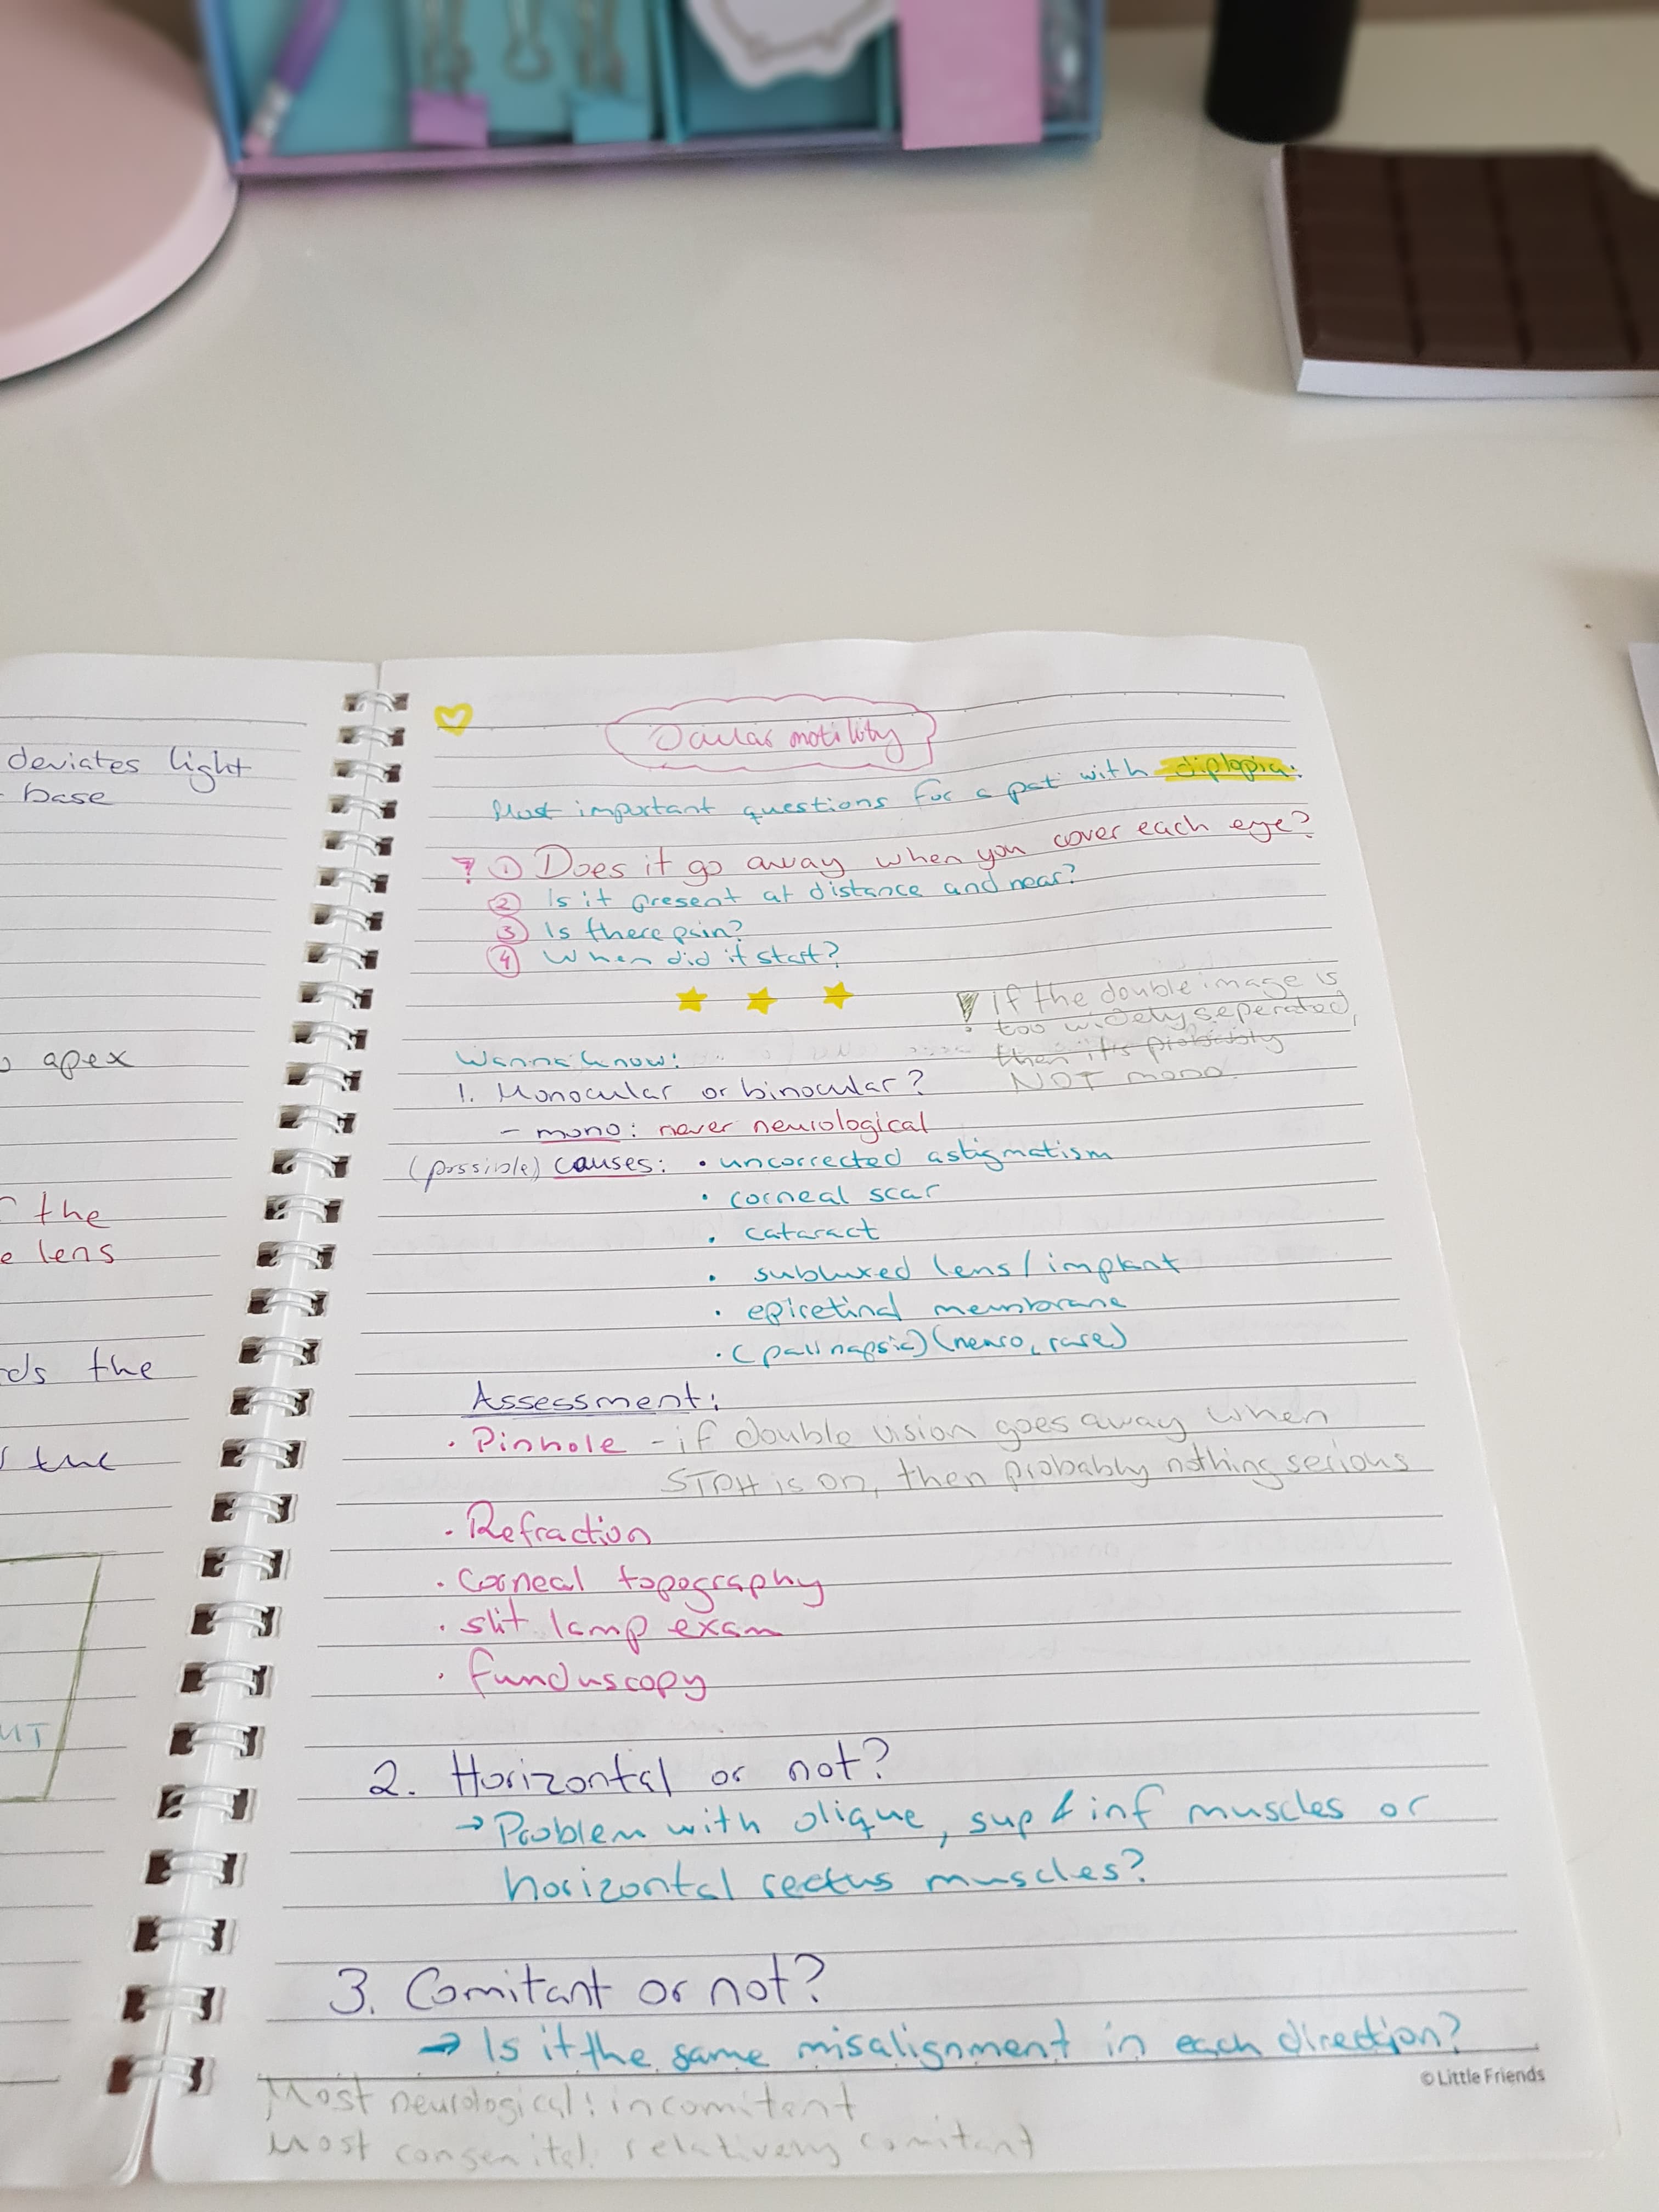 deviates light
base
apex
the
lens
ds the
the
Ocular motility
Most important questions for a pat with diplopia:
① Does it go away when you cover each eye?
② Is it present at distance and near?
③ Is there pain?
④ When did it start?
! if the double image is
too widely seperated,
then it's probably
NOT mono.
Wanna know:
1. Monocular or binocular?
- mono: never neurological
(possible) causes: • uncorrected astigmatism
• corneal scar
• cataract
• subluxed lens/implant
• epiretinal membrane
• (palinapsia) (neuro, rare)
Assessment:
• Pinhole - if double vision goes away when
STPH is on, then probably nothing serious
• Refraction
• Corneal topography
• slit lamp exam
• funduscopy
2. Horizontal or not?
→ Problem with olique, sup & inf muscles or
horizontal rectus muscles?
3. Comitant or not?
→ Is it the same misalignment in each direction?
© Little Friends
Most neurological: incomitant
Most congenital: relatively comitant